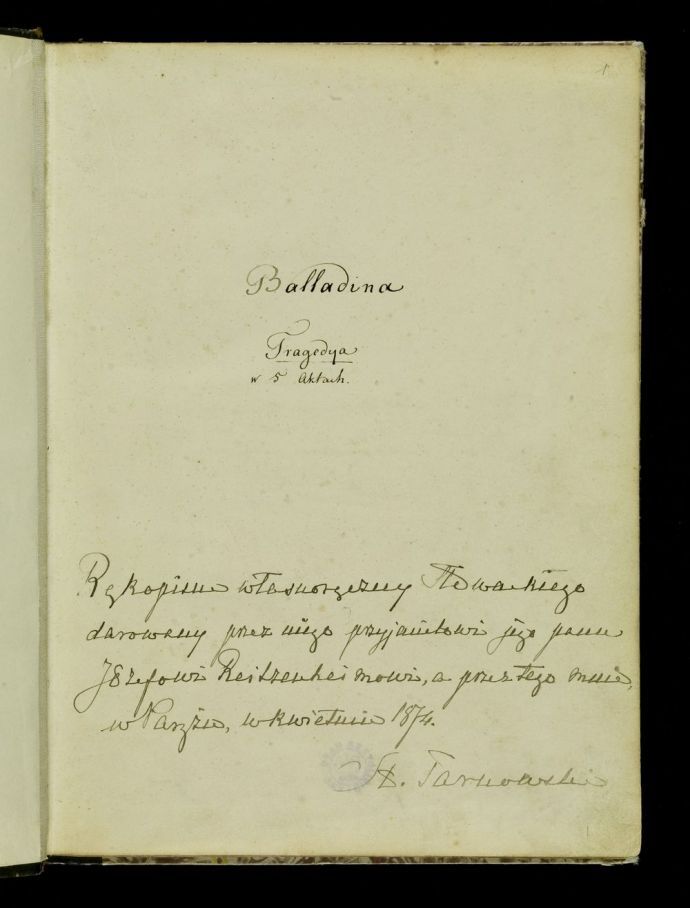 1
Balladina
Tragedya
w 5 Aktach.
Rękopism własnoręczny Słowackiego
darowany przez niego przyjacielowi jego panu
Józefowi Reitzenheimowi, a przez tego mnie,
w Paryżu, w kwietniu 1874.
St. Tarnowski